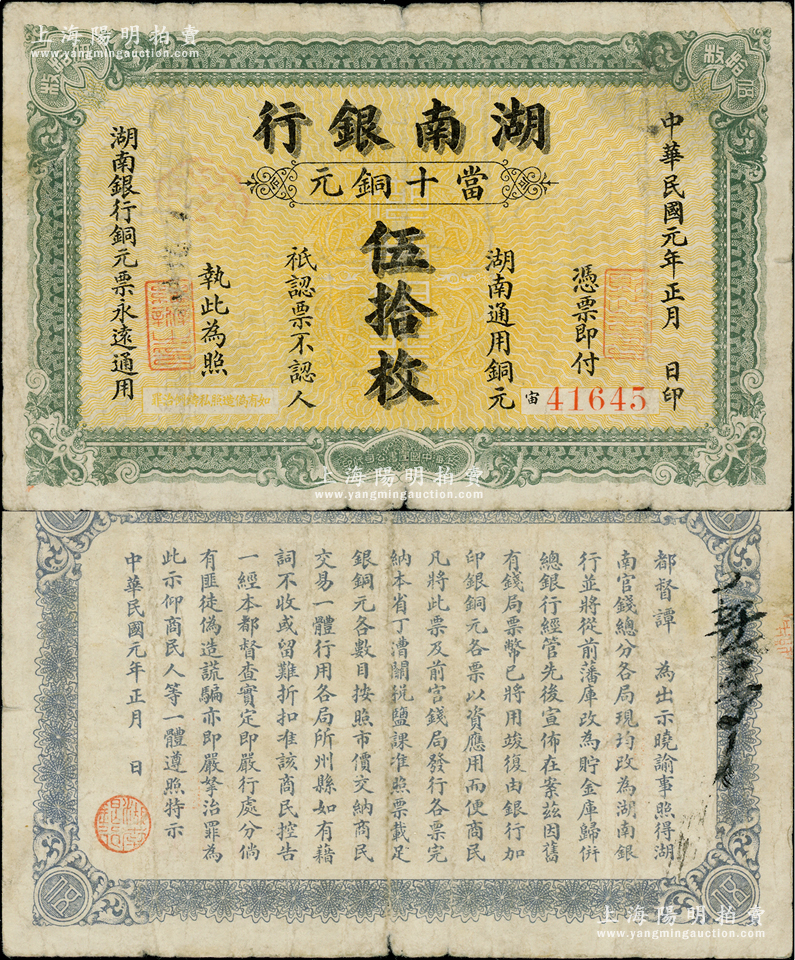 上海陽明拍賣
www.yangmingauction.com
伍拾枚
湖南銀行
當十銅元
中華民國元年正月 日印
憑票即付
湖南通用銅元
伍拾枚
祇認票不認人
執此為照
湖南銀行銅元票永遠通用
宙 41645
上海陽明拍賣
www.yangmingauction.com
都督譚 為出示曉諭事照得湖
南官錢總分各局現均改為湖南銀
行並將從前藩庫改為貯金庫歸併
總銀行經管先後宣佈在案茲因舊
有錢局票幣已將用竣復由銀行加
印銀銅元各票以資應用而便商民
凡將此票及前官錢局發行各票完
納本省丁漕關稅鹽課准照票載足
銀銅元各數目按照市價交納商民
交易一體行用各局所州縣如有藉
詞不收或留難折扣准該商民控告
一經本都督查實定即嚴行處分倘
有匪徒偽造謊騙亦即嚴拏治罪為
此示仰商民人等一體遵照特示
中華民國元年正月 日
上海陽明拍賣
www.yangmingauction.com